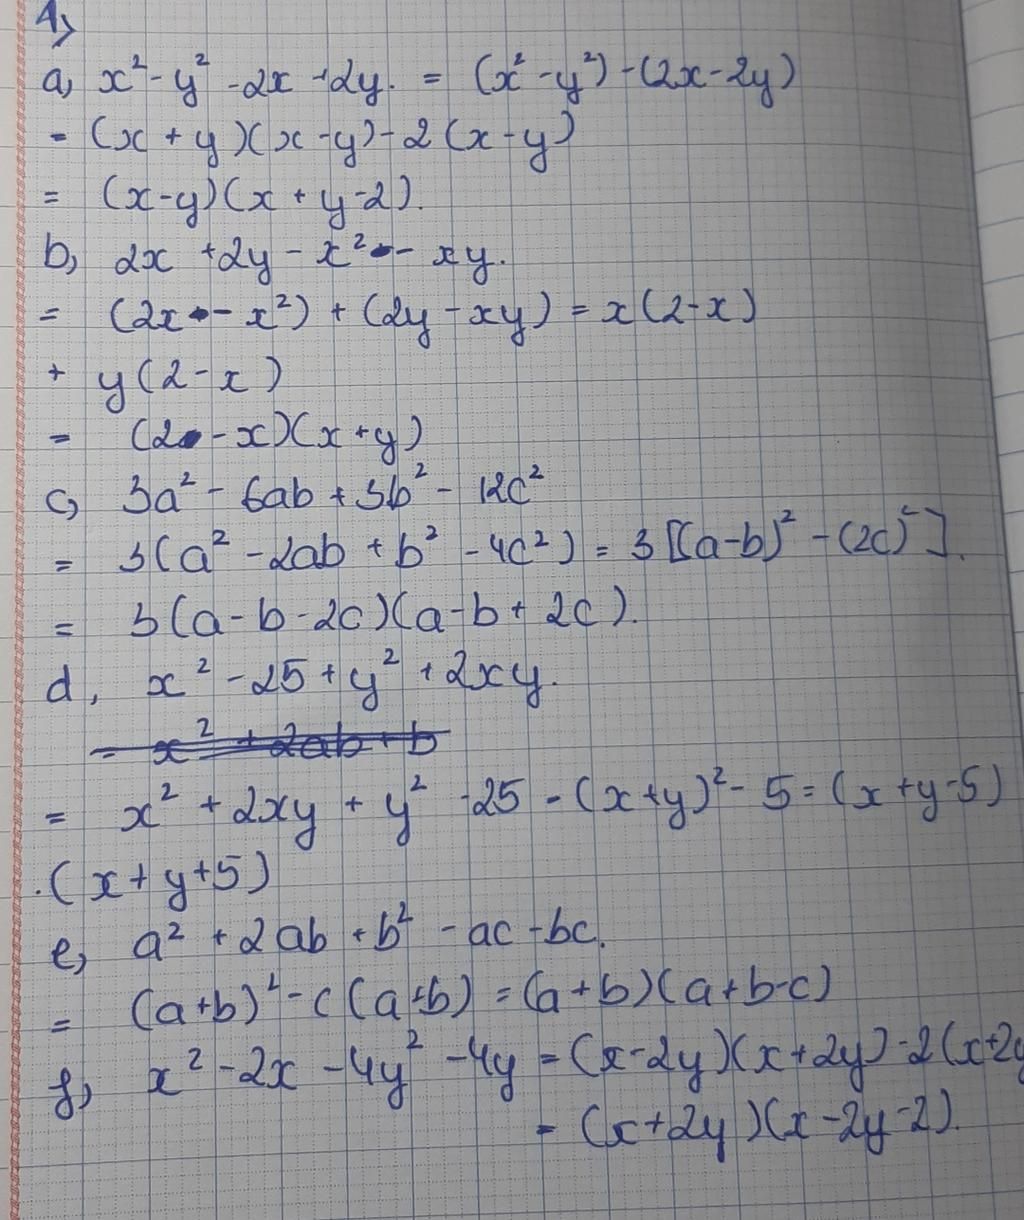 1)
a, x² - y² - 2x + 2y. = (x² - y²) - (2x - 2y)
= (x + y)(x - y) - 2(x - y)
= (x - y)(x + y - 2).
b, 2x + 2y - x² - xy.
= (2x - x²) + (2y - xy) = x(2 - x)
+ y(2 - x)
= (2 - x)(x + y)
c, 3a² - 6ab + 3b² - 12c²
= 3(a² - 2ab + b² - 4c²) = 3[(a - b)² - (2c)²].
= 3(a - b - 2c)(a - b + 2c).
d, x² - 25 + y² + 2xy.
= x² + 2ab + b
= x² + 2xy + y² - 25 = (x + y)² - 5 = (x + y - 5)
.(x + y + 5)
e, a² + 2ab + b² - ac - bc.
= (a + b)² - c(a + b) = (a + b)(a + b - c)
f, x² - 2x - 4y² - 4y = (x - 2y)(x + 2y) - 2(x + 2y
= (x + 2y)(x - 2y - 2).